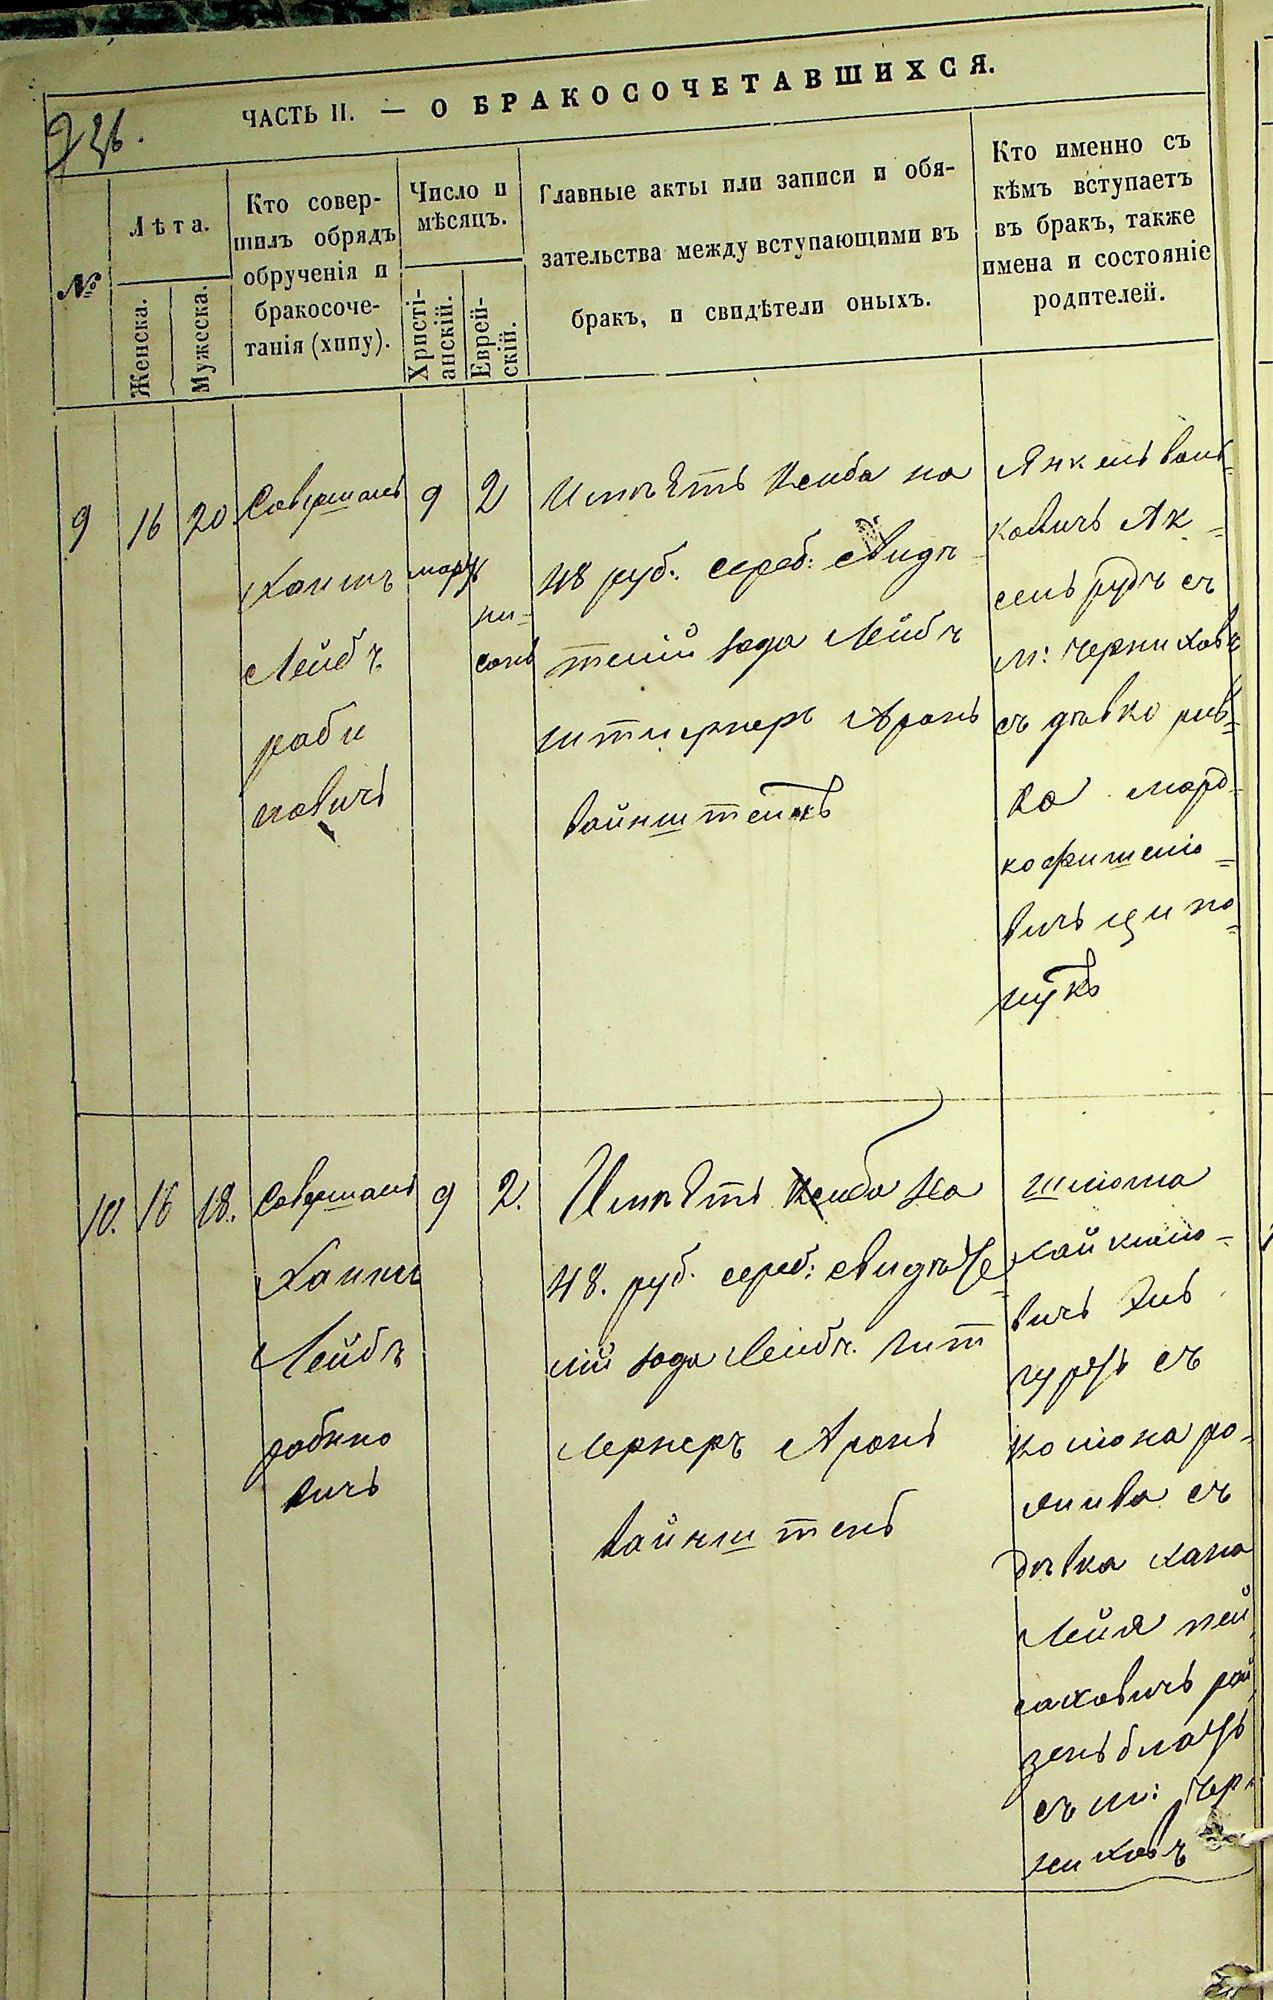 ЧАСТЬ II. — О БРАКОСОЧЕТАВШИХСЯ.
№
Лѣта.
Женска.
Мужсска.
Кто совер-
шилъ обрядъ
обрученія и
бракосоче-
танія (хипу).
Число и
мѣсяцъ.
Христі-
анскій.
Еврей-
скій.
Главные акты или записи и обя-
зательства между вступающими въ
бракъ, и свидѣтели оныхъ.
Кто именно съ
кѣмъ вступаетъ
въ бракъ, также
имена и состояніе
родителей.
9
16
20
Совершалъ
Хаимъ
Лейбъ
раби
новичъ
9
мартъ
2
ни=
санъ
Имѣетъ на
48 руб: сереб: свидѣ
телій Лейбъ
штирнеръ Аронъ
вайнштейнъ
Янкель Воль=
ковичъ Ак=
сельрудъ съ
м: Черниховъ
съ дѣвко рив=
ка морд=
кофишелю=
вичъ ципо=
нукъ
10.
16
18.
Совершалъ
Хаимъ
Лейбъ
рабино
вичъ
9
2.
Имѣетъ на
48. руб. сереб: свидѣте=
лій Лейбъ. Шт
Лернеръ Аронъ
вайнштенъ
шлюма
съ
съ
дѣвка хана
Лейя пей
саховичъ рой
зенъблатъ
съ м: Чер=
ниховъ